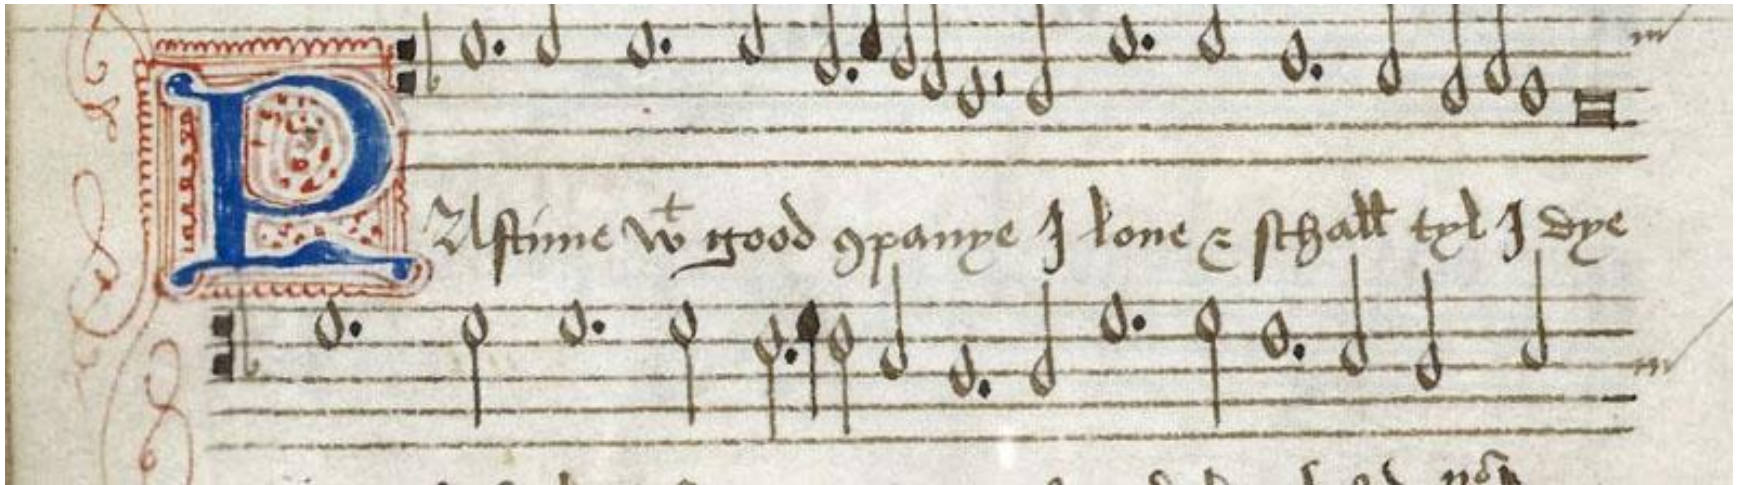 PAstime wͭ good ꝯpanye I loue & schall tyl I dye